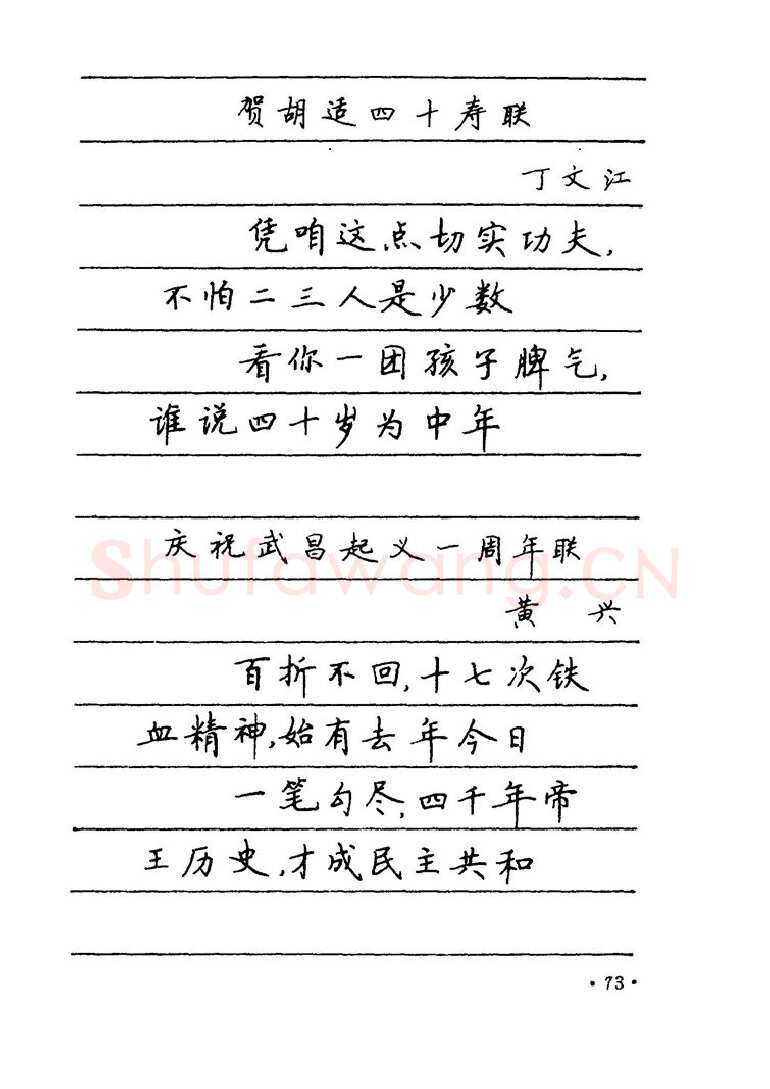 贺胡适四十寿联
丁文江
凭咱这点切实功夫,
不怕二三人是少数
看你一团孩子脾气,
谁说四十岁为中年
庆祝武昌起义一周年联
shufawang.CN
黄 兴
百折不回,十七次铁
血精神,始有去年今日
一笔勾尽,四千年帝
王历史,才成民主共和
·73·